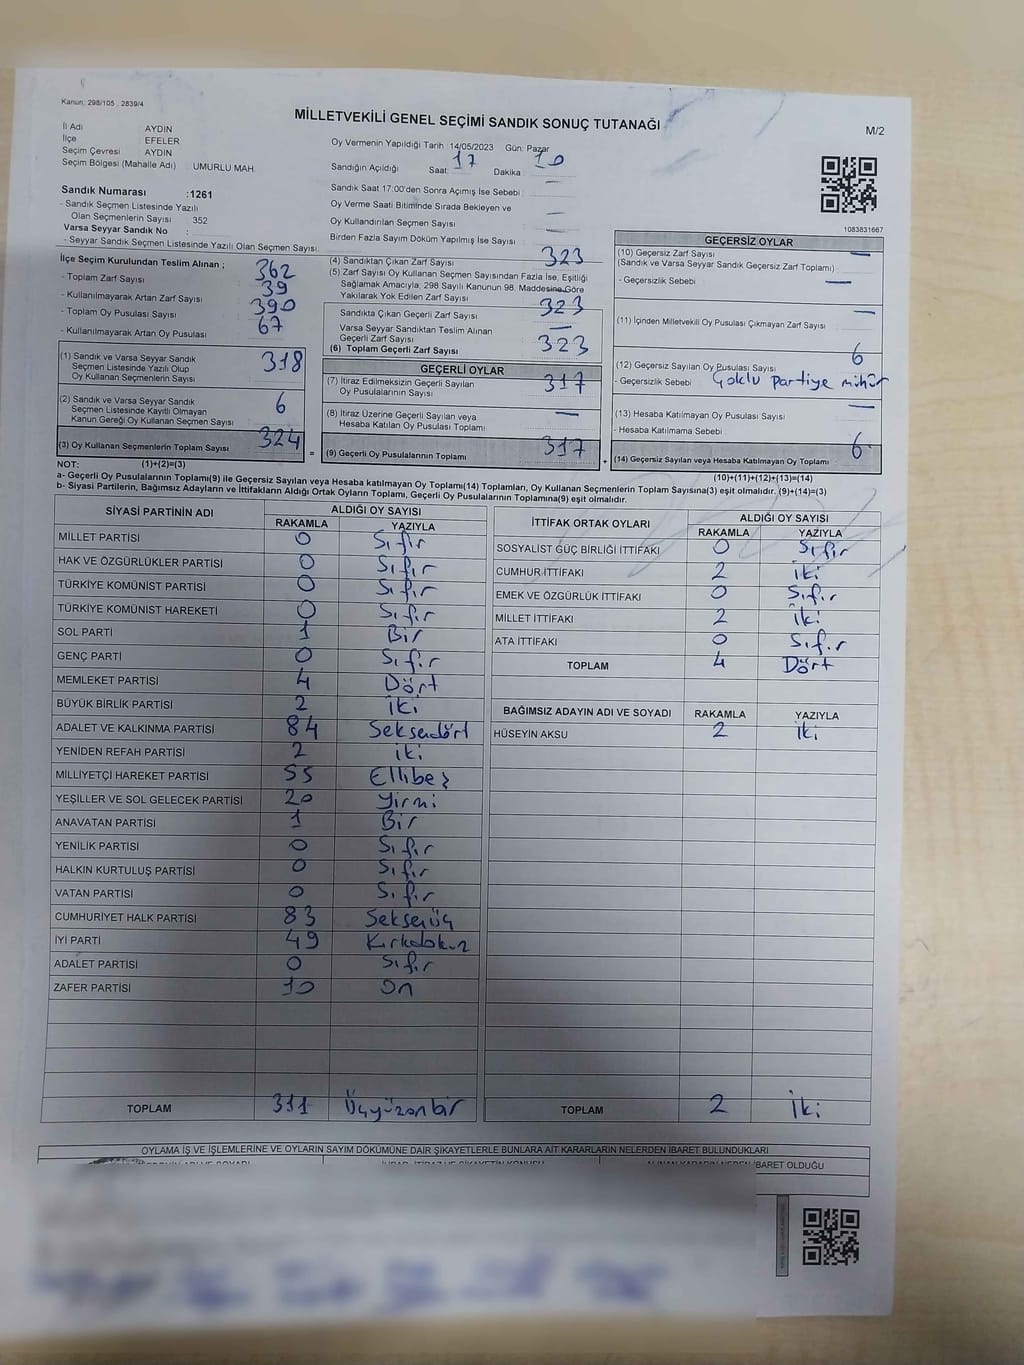 Kanun: 298/105 , 2839/4
MİLLETVEKİLİ GENEL SEÇİMİ SANDIK SONUÇ TUTANAĞI
M/2
İl Adı AYDIN
İlçe EFELER
Seçim Çevresi AYDIN
Seçim Bölgesi (Mahalle Adı) UMURLU MAH.
Sandık Numarası :1261
- Sandık Seçmen Listesinde Yazılı
Olan Seçmenlerin Sayısı 352
Varsa Seyyar Sandık No :
- Seyyar Sandık Seçmen Listesinde Yazılı Olan Seçmen Sayısı:
Oy Vermenin Yapıldığı Tarih :14/05/2023 Gün: Pazar
Sandığın Açıldığı Saat: 17 Dakika 10
Sandık Saat 17:00'den Sonra Açımış İse Sebebi : —
Oy Verme Saati Bitiminde Sırada Bekleyen ve
Oy Kullandırılan Seçmen Sayısı —
Birden Fazla Sayım Döküm Yapılmış İse Sayısı —
1083831667
İlçe Seçim Kurulundan Teslim Alınan ;
- Toplam Zarf Sayısı 362
- Kullanılmayarak Artan Zarf Sayısı 39
- Toplam Oy Pusulası Sayısı 390
- Kullanılmayarak Artan Oy Pusulası 67
(1) Sandık ve Varsa Seyyar Sandık
Seçmen Listesinde Yazılı Olup
Oy Kullanan Seçmenlerin Sayısı 318
(2) Sandık ve Varsa Seyyar Sandık
Seçmen Listesinde Kayıtlı Olmayan
Kanun Gereği Oy Kullanan Seçmen Sayısı 6
(3) Oy Kullanan Seçmenlerin Toplam Sayısı 324
(4) Sandıktan Çıkan Zarf Sayısı 323
(5) Zarf Sayısı Oy Kullanan Seçmen Sayısından Fazla İse, Eşitliği
Sağlamak Amacıyla, 298 Sayılı Kanunun 98. Maddesine Göre
Yakılarak Yok Edilen Zarf Sayısı —
Sandıkta Çıkan Geçerli Zarf Sayısı 323
Varsa Seyyar Sandıktan Teslim Alınan
Geçerli Zarf Sayısı —
(6) Toplam Geçerli Zarf Sayısı 323
GEÇERLİ OYLAR
(7) İtiraz Edilmeksizin Geçerli Sayılan
Oy Pusulalarının Sayısı 317
(8) İtiraz Üzerine Geçerli Sayılan veya
Hesaba Katılan Oy Pusulası Toplamı —
= (9) Geçerli Oy Pusulalarının Toplamı 317
GEÇERSİZ OYLAR
(10) Geçersiz Zarf Sayısı —
(Sandık ve Varsa Seyyar Sandık Geçersiz Zarf Toplamı)
- Geçersizlik Sebebi —
(11) İçinden Milletvekili Oy Pusulası Çıkmayan Zarf Sayısı —
(12) Geçersiz Sayılan Oy Pusulası Sayısı 6
- Geçersizlik Sebebi Çoklu partiye mühür
(13) Hesaba Katılmayan Oy Pusulası Sayısı —
- Hesaba Katılmama Sebebi
+ (14) Geçersiz Sayılan veya Hesaba Katılmayan Oy Toplamı 6
NOT: (1)+(2)=(3) (10)+(11)+(12)+(13)=(14)
a- Geçerli Oy Pusulalarının Toplamı(9) ile Geçersiz Sayılan veya Hesaba katılmayan Oy Toplamı(14) Toplamları, Oy Kullanan Seçmenlerin Toplam Sayısına(3) eşit olmalıdır. (9)+(14)=(3)
b- Siyasi Partilerin, Bağımsız Adayların ve İttifakların Aldığı Ortak Oyların Toplamı, Geçerli Oy Pusulalarının Toplamına(9) eşit olmalıdır.
SİYASİ PARTİNİN ADI ALDIĞI OY SAYISI
RAKAMLA YAZIYLA
MİLLET PARTİSİ 0 Sıfır
HAK VE ÖZGÜRLÜKLER PARTİSİ 0 Sıfır
TÜRKİYE KOMÜNİST PARTİSİ 0 Sıfır
TÜRKİYE KOMÜNİST HAREKETİ 0 Sıfır
SOL PARTİ 1 Bir
GENÇ PARTİ 0 Sıfır
MEMLEKET PARTİSİ 4 Dört
BÜYÜK BİRLİK PARTİSİ 2 İki
ADALET VE KALKINMA PARTİSİ 84 Seksendört
YENİDEN REFAH PARTİSİ 2 iki
MİLLİYETÇİ HAREKET PARTİSİ 55 Ellibeş
YEŞİLLER VE SOL GELECEK PARTİSİ 20 yirmi
ANAVATAN PARTİSİ 1 Bir
YENİLİK PARTİSİ 0 Sıfır
HALKIN KURTULUŞ PARTİSİ 0 Sıfır
VATAN PARTİSİ 0 Sıfır
CUMHURİYET HALK PARTİSİ 83 Seksenüç
İYİ PARTİ 49 Kırkdokuz
ADALET PARTİSİ 0 Sıfır
ZAFER PARTİSİ 10 On
TOPLAM 311 Üçyüzonbir
İTTİFAK ORTAK OYLARI ALDIĞI OY SAYISI
RAKAMLA YAZIYLA
SOSYALİST GÜÇ BİRLİĞİ İTTİFAKI 0 Sıfır
CUMHUR İTTİFAKI 2 İki
EMEK VE ÖZGÜRLÜK İTTİFAKI 0 Sıfır
MİLLET İTTİFAKI 2 İki
ATA İTTİFAKI 0 Sıfır
TOPLAM 4 Dört
BAĞIMSIZ ADAYIN ADI VE SOYADI RAKAMLA YAZIYLA
HÜSEYİN AKSU 2 İki
TOPLAM 2 İki
OYLAMA İŞ VE İŞLEMLERİNE VE OYLARIN SAYIM DÖKÜMÜNE DAİR ŞİKAYETLERLE BUNLARA AİT KARARLARIN NELERDEN İBARET BULUNDUKLARI
İBARET OLDUĞU